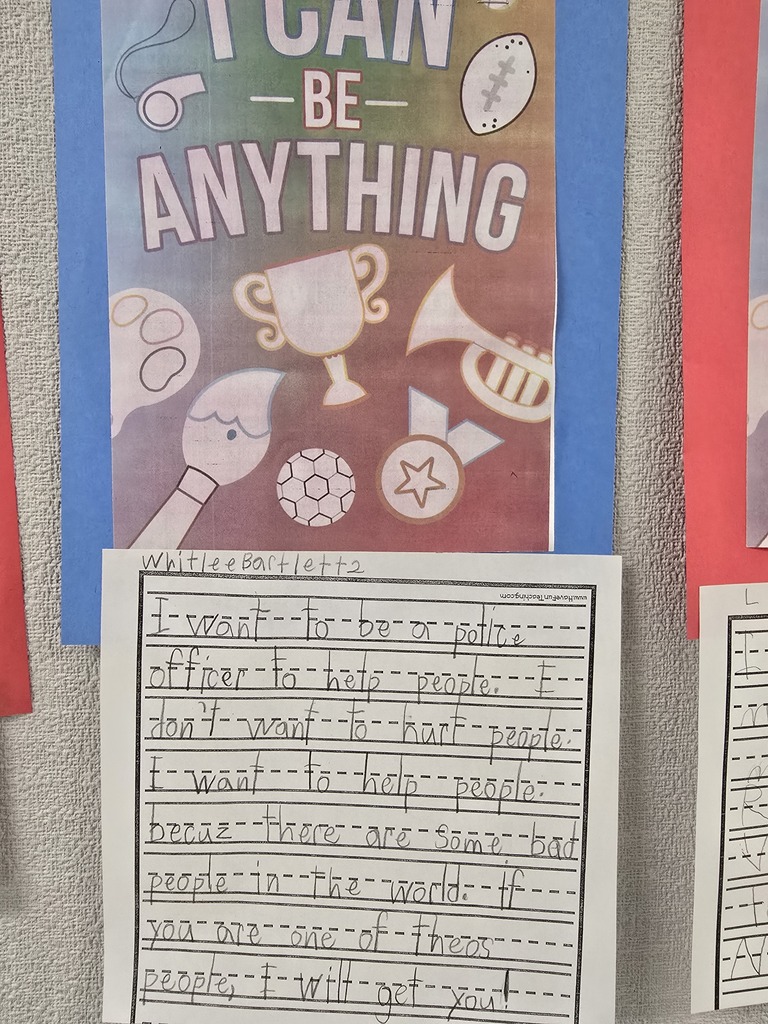 I CAN
BE
ANYTHING
Whitlee Bartlett2
www.HaveFunTeaching.com
I want to be a police
officer to help people. I
don't want to hurt people.
I want to help people.
becuz there are some bad
people in the world. If
you are one of theos
people, I will get you!